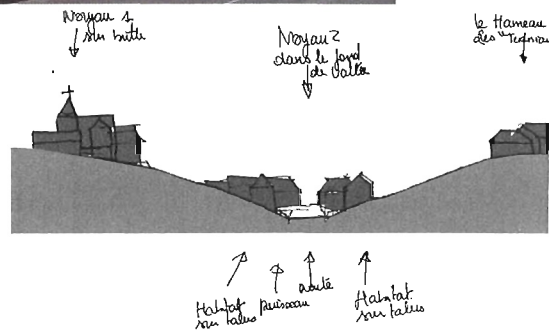 Noyau 1
sur butte
Noyau 2
dans le fond
de vallée
le Hameau
des
Habitat
sur talus
ruisseau
route
Habitat
sur talus